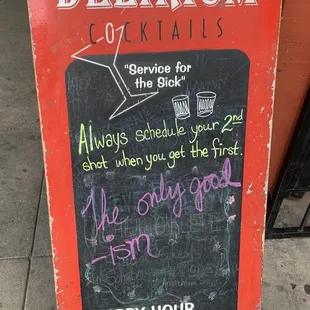 DELIRIUM
COCKTAILS
"Service for
the Sick"
Always schedule your 2nd
shot when you get the first.
The only good
-ism
HAPPY HOUR